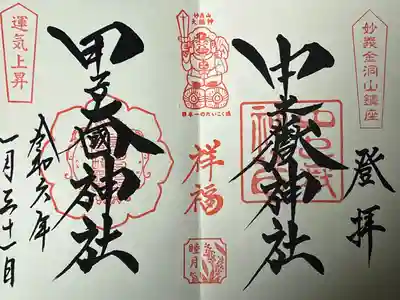 妙義金洞山鎮座
登拝
中之嶽神社
日本一のだいこく様
祥福
睦月
運気上昇
甲子大國神社
令和六年
一月三十一日